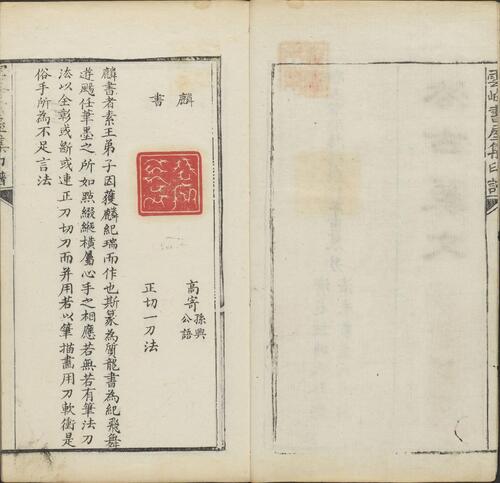 書屋集印譜
麟書
高寄
孫興
公語
正切一刀法
麟書者素王弟子因獲麟紀瑞而作也斯篆為質龍書為紀飛舞
遊颺任筆墨之所如點綴縱橫屬心手之相應若無若有筆法刀
法以全彰或斷或連正刀切刀而并用若以筆描畫用刀軟衝是
俗手所為不足言法